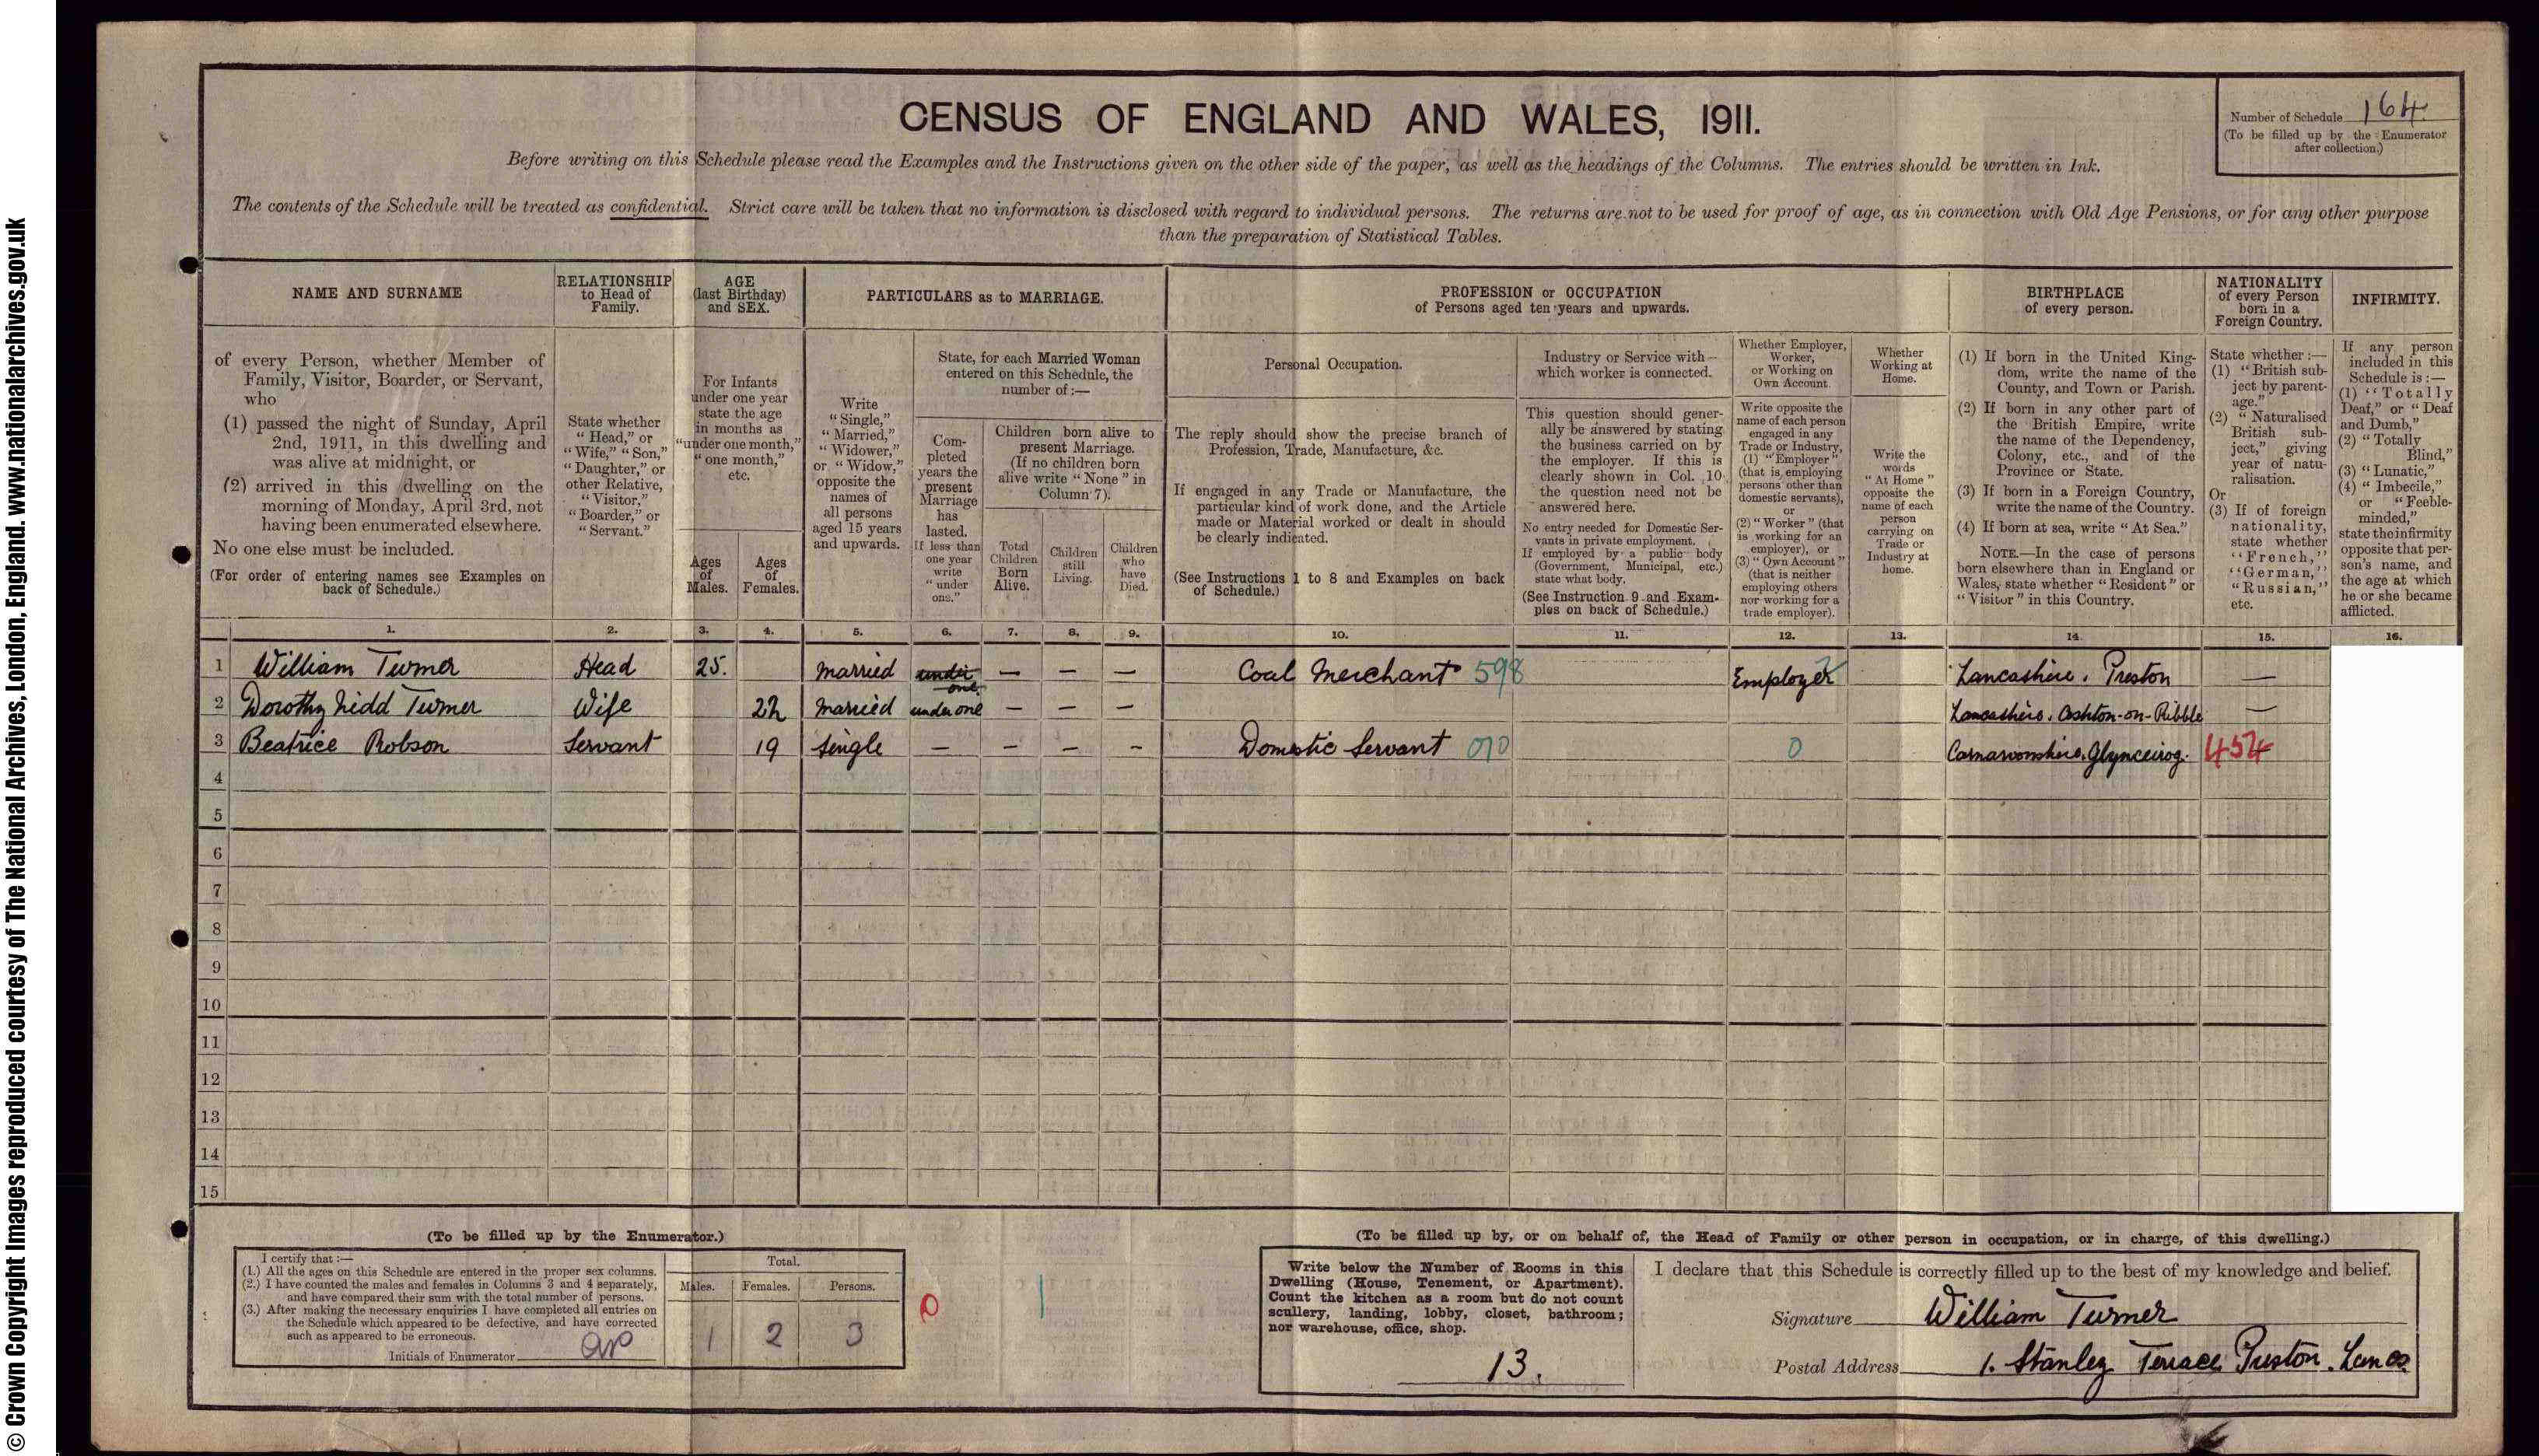 CENSUS OF ENGLAND AND WALES, 1911.
Number of Schedule 164.
(To be filled up by the Enumerator
after collection.)
Before writing on this Schedule please read the Examples and the Instructions given on the other side of the paper, as well as the headings of the Columns. The entries should be written in Ink.
The contents of the Schedule will be treated as confidential. Strict care will be taken that no information is disclosed with regard to individual persons. The returns are not to be used for proof of age, as in connection with Old Age Pensions, or for any other purpose
than the preparation of Statistical Tables.
NAME AND SURNAME
of every Person, whether Member of
Family, Visitor, Boarder, or Servant,
who
(1) passed the night of Sunday, April
2nd, 1911, in this dwelling and
was alive at midnight, or
(2) arrived in this dwelling on the
morning of Monday, April 3rd, not
having been enumerated elsewhere.
No one else must be included.
(For order of entering names see Examples on
back of Schedule.)
RELATIONSHIP
to Head of
Family.
State whether
"Head," or
"Wife," "Son,"
"Daughter," or
other Relative,
"Visitor,"
"Boarder," or
"Servant."
AGE
(last Birthday)
and SEX.
For Infants
under one year
state the age
in months as
"under one month,"
"one month,"
etc.
Ages
of
Males.
Ages
of
Females.
PARTICULARS as to MARRIAGE.
Write
"Single,"
"Married,"
"Widower,"
or "Widow,"
opposite the
names of
all persons
aged 15 years
and upwards.
State, for each Married Woman
entered on this Schedule, the
number of :—
Com-
pleted
years the
present
Marriage
has
lasted.
If less than
one year
write
"under
one."
Children born alive to
present Marriage.
(If no children born
alive write "None" in
Column 7).
Total
Children
Born
Alive.
Children
still
Living.
Children
who
have
Died.
PROFESSION or OCCUPATION
of Persons aged ten years and upwards.
Personal Occupation.
The reply should show the precise branch of
Profession, Trade, Manufacture, &c.
If engaged in any Trade or Manufacture, the
particular kind of work done, and the Article
made or Material worked or dealt in should
be clearly indicated.
(See Instructions 1 to 8 and Examples on back
of Schedule.)
Industry or Service with
which worker is connected.
This question should gener-
ally be answered by stating
the business carried on by
the employer. If this is
clearly shown in Col. 10
the question need not be
answered here.
No entry needed for Domestic Ser-
vants in private employment.
If employed by a public body
(Government, Municipal, etc.)
state what body.
(See Instruction 9 and Exam-
ples on back of Schedule.)
Whether Employer,
Worker,
or Working on
Own Account.
Write opposite the
name of each person
engaged in any
Trade or Industry,
(1) "Employer"
(that is employing
persons other than
domestic servants),
or
(2) "Worker" (that
is working for an
employer), or
(3) "Own Account"
(that is neither
employing others
nor working for a
trade employer).
Whether
Working at
Home.
Write the
words
"At Home"
opposite the
name of each
person
carrying on
Trade or
Industry at
home.
BIRTHPLACE
of every person.
(1) If born in the United King-
dom, write the name of the
County, and Town or Parish.
(2) If born in any other part of
the British Empire, write
the name of the Dependency,
Colony, etc., and of the
Province or State.
(3) If born in a Foreign Country,
write the name of the Country.
(4) If born at sea, write "At Sea."
NOTE.—In the case of persons
born elsewhere than in England or
Wales, state whether "Resident" or
"Visitor" in this Country.
NATIONALITY
of every Person
born in a
Foreign Country.
State whether :—
(1) "British sub-
ject by parent-
age."
(2) "Naturalised
British sub-
ject," giving
year of natu-
ralisation.
Or
(3) If of foreign
nationality,
state whether
"French,"
"German,"
"Russian,"
etc.
INFIRMITY.
If any person
included in this
Schedule is :—
(1) "Totally
Deaf," or "Deaf
and Dumb,"
(2) "Totally
Blind,"
(3) "Lunatic,"
(4) "Imbecile,"
or "Feeble-
minded,"
state the infirmity
opposite that per-
son's name, and
the age at which
he or she became
afflicted.
1. 2. 3. 4. 5. 6. 7. 8. 9. 10. 11. 12. 13. 14. 15. 16.
1 William Turner Head 25. Married under one — — — Coal Merchant 598 Employer 2 Lancashire. Preston —
2 Dorothy Nidd Turner Wife 22 Married under one — — — Lancashire. Ashton-on-Ribble —
3 Beatrice Robson Servant 19 Single — — — — Domestic Servant 010 0 Carnarvonshire. Glynceirog. 454
4
5
6
7
8
9
10
11
12
13
14
15
(To be filled up by the Enumerator.)
I certify that :—
(1.) All the ages on this Schedule are entered in the proper sex columns.
(2.) I have counted the males and females in Columns 3 and 4 separately,
and have compared their sum with the total number of persons.
(3.) After making the necessary enquiries I have completed all entries on
the Schedule which appeared to be defective, and have corrected
such as appeared to be erroneous.
Initials of Enumerator
Total.
Males. Females. Persons.
1 2 3
(To be filled up by, or on behalf of, the Head of Family or other person in occupation, or in charge, of this dwelling.)
Write below the Number of Rooms in this
Dwelling (House, Tenement, or Apartment).
Count the kitchen as a room but do not count
scullery, landing, lobby, closet, bathroom;
nor warehouse, office, shop.
13.
I declare that this Schedule is correctly filled up to the best of my knowledge and belief.
Signature William Turner
Postal Address 1. Stanley Terrace Preston. Lancs
© Crown Copyright Images reproduced courtesy of The National Archives, London, England. www.nationalarchives.gov.uk